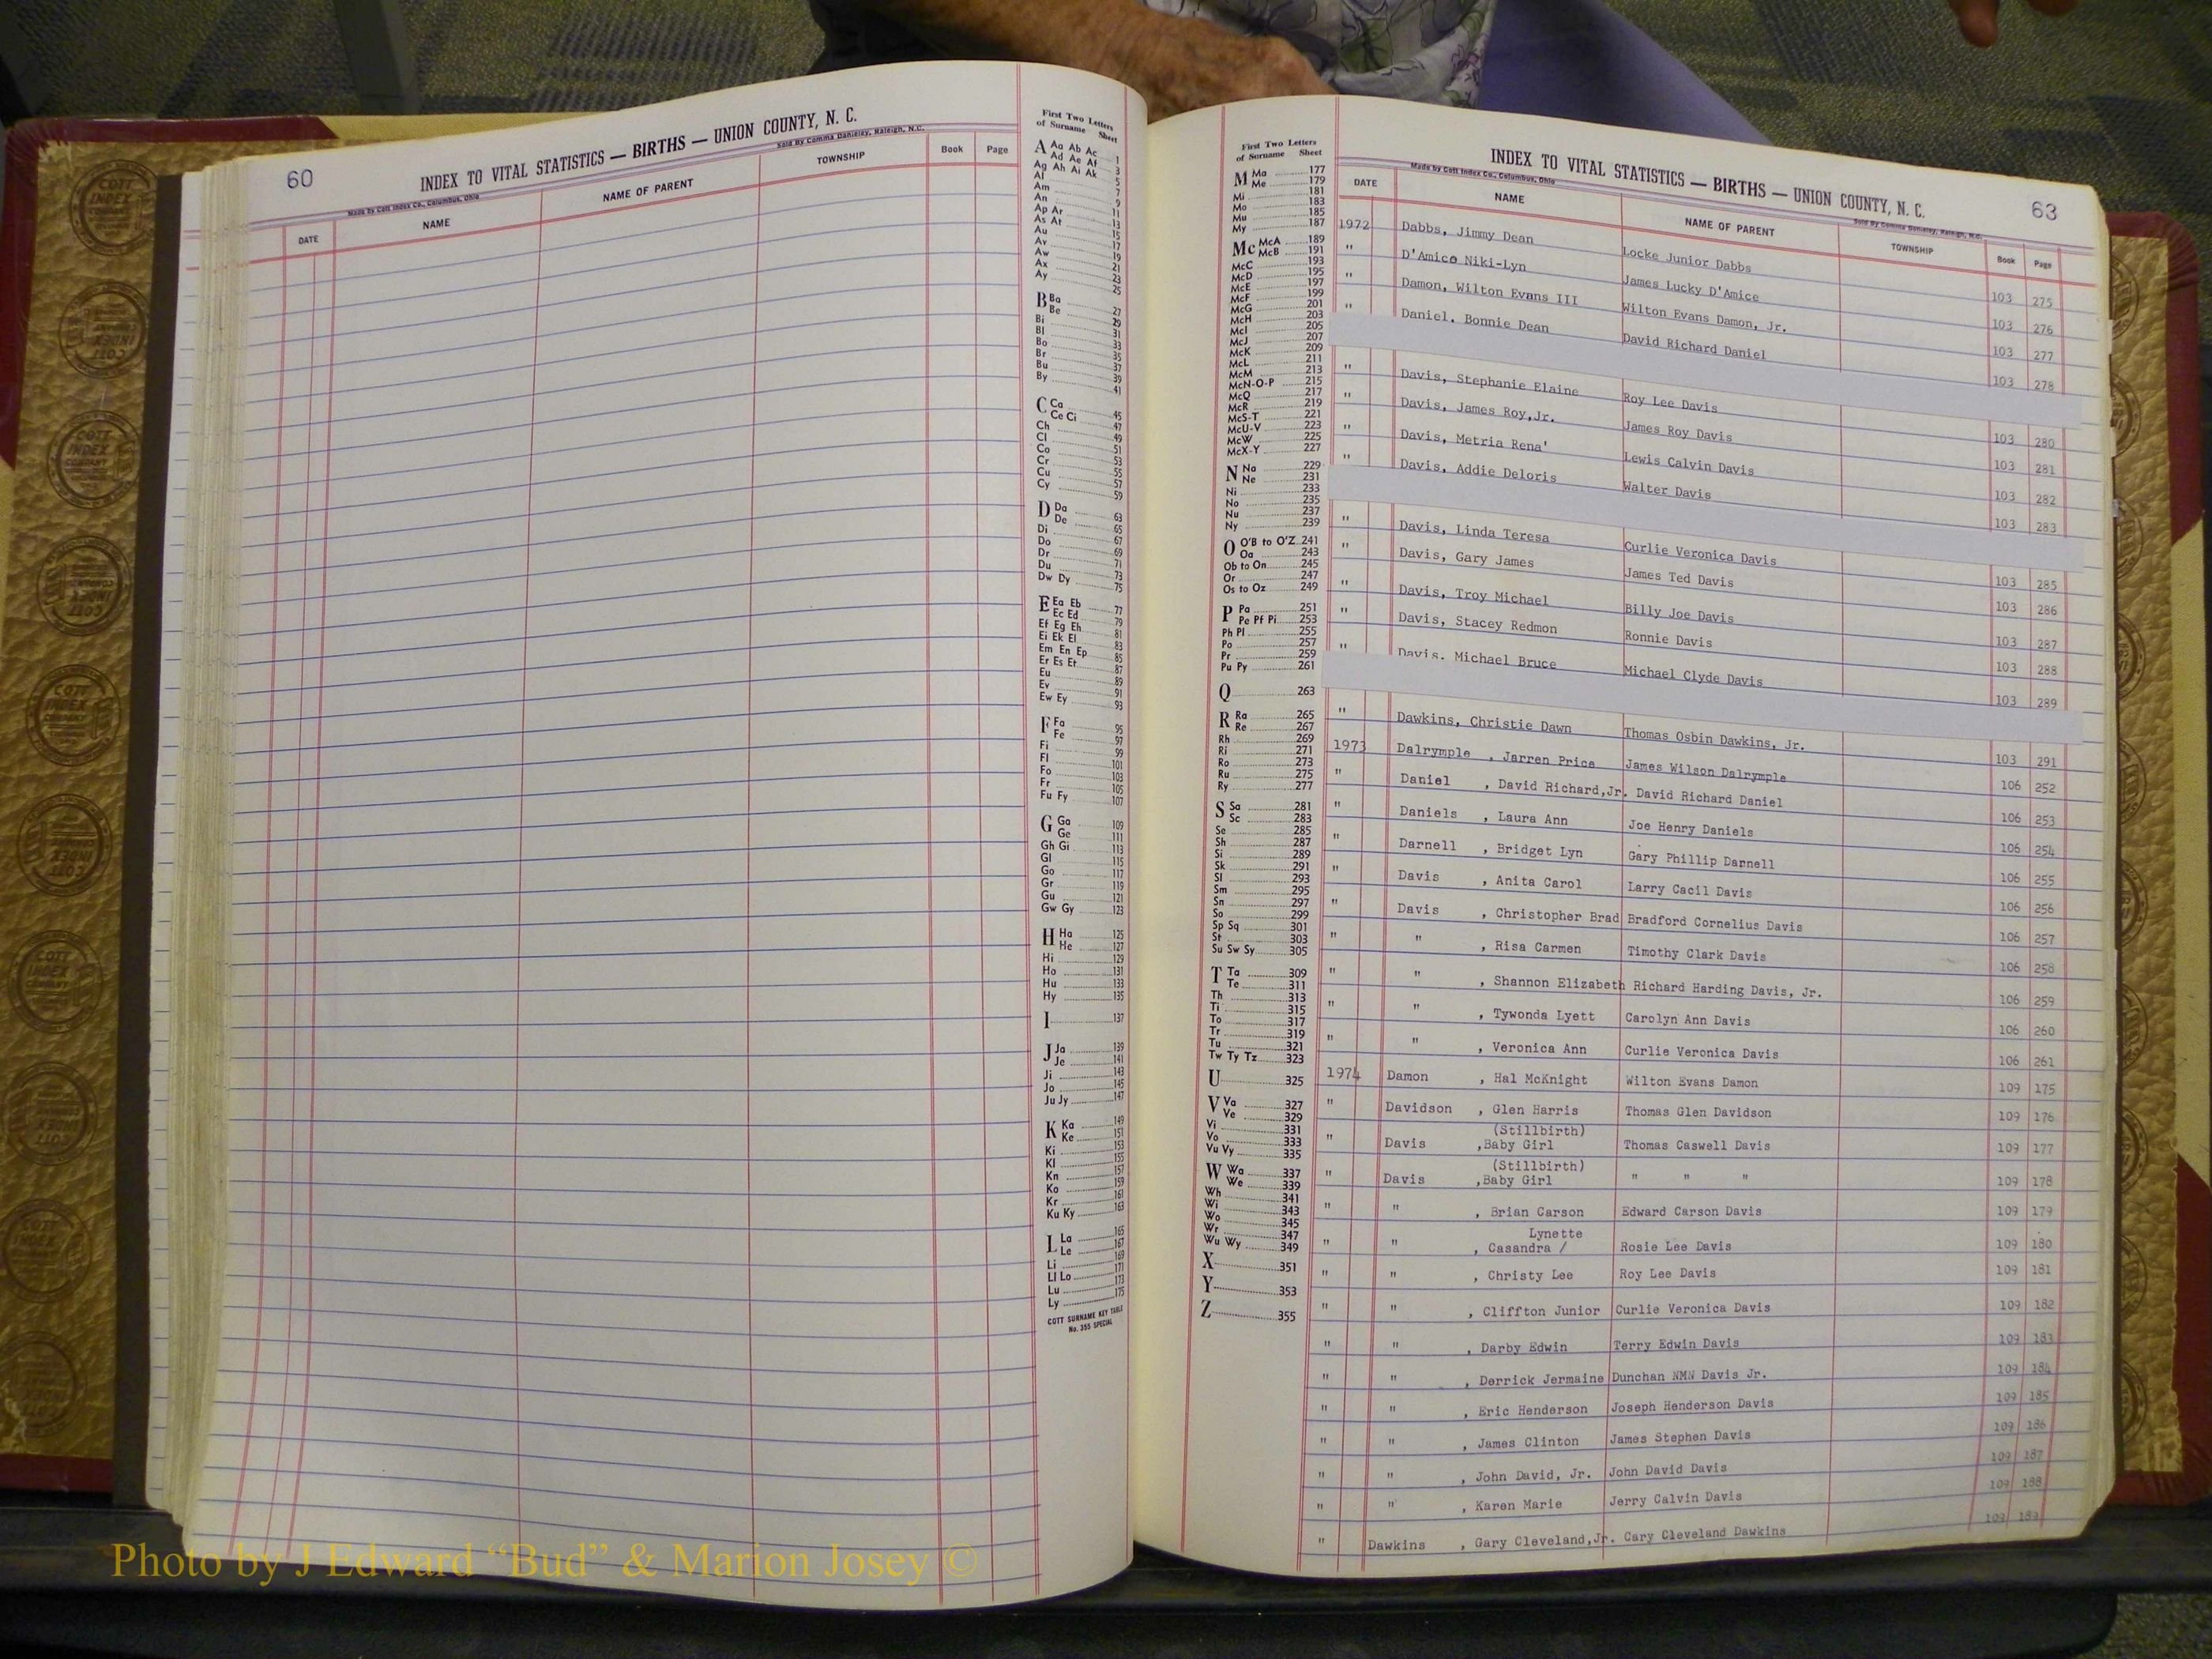 60
INDEX TO VITAL STATISTICS — BIRTHS — UNION COUNTY, N. C.
Made by Cott Index Co., Columbus, Ohio
Sold By Comma Danieley, Raleigh, N.C.
DATE NAME NAME OF PARENT TOWNSHIP Book Page
First Two Letters
of Surname Sheet
A Aa Ab Ac 1
Ad Ae Af 3
Ag Ah Ai Ak 5
Al 7
Am 9
An 11
Ap Ar 13
As At 15
Au 17
Av 19
Aw 21
Ax 23
Ay 25
B Ba 27
Be 29
Bi 31
Bl 33
Bo 35
Br 37
Bu 39
By 41
C Ca 45
Ce Ci 47
Ch 49
Cl 51
Co 53
Cr 55
Cu 57
Cy 59
D Da 63
De 65
Di 67
Do 69
Dr 71
Du 73
Dw Dy 75
E Ea Eb 77
Ec Ed 79
Ef Eg Eh 81
Ei Ek El 83
Em En Ep 85
Er Es Et 87
Eu 89
Ev 91
Ew Ey 93
F Fa 95
Fe 97
Fi 99
Fl 101
Fo 103
Fr 105
Fu Fy 107
G Ga 109
Ge 111
Gh Gi 113
Gl 115
Go 117
Gr 119
Gu 121
Gw Gy 123
H Ha 125
He 127
Hi 129
Ho 131
Hu 133
Hy 135
I 137
J Ja 139
Je 141
Ji 143
Jo 145
Ju Jy 147
K Ka 149
Ke 151
Ki 153
Kl 155
Kn 157
Ko 159
Kr 161
Ku Ky 163
L La 165
Le 167
Li 169
Ll Lo 171
Lu 173
Ly 175
COTT SURNAME KEY TABLE
No. 355 SPECIAL
First Two Letters
of Surname Sheet
M Ma 177
Me 179
Mi 181
Mo 183
Mu 185
My 187
Mc McA 189
McB 191
McC 193
McD 195
McE 197
McF 199
McG 201
McH 203
McI 205
McJ 207
McK 209
McL 211
McM 213
McN-O-P 215
McQ 217
McR 219
McS-T 221
McU-V 223
McW 225
McX-Y 227
N Na 229
Ne 231
Ni 233
No 235
Nu 237
Ny 239
O O'B to O'Z 241
Oa 243
Ob to On 245
Or 247
Os to Oz 249
P Pa 251
Pe Pf Pi 253
Ph Pl 255
Po 257
Pr 259
Pu Py 261
Q 263
R Ra 265
Re 267
Rh 269
Ri 271
Ro 273
Ru 275
Ry 277
S Sa 281
Sc 283
Se 285
Sh 287
Si 289
Sk 291
Sl 293
Sm 295
Sn 297
So 299
Sp Sq 301
St 303
Su Sw Sy 305
T Ta 309
Te 311
Th 313
Ti 315
To 317
Tr 319
Tu 321
Tw Ty Tz 323
U 325
V Va 327
Ve 329
Vi 331
Vo 333
Vu Vy 335
W Wa 337
We 339
Wh 341
Wi 343
Wo 345
Wr 347
Wu Wy 349
X 351
Y 353
Z 355
INDEX TO VITAL STATISTICS — BIRTHS — UNION COUNTY, N. C.
63
Made by Cott Index Co., Columbus, Ohio
Sold By Comma Danieley, Raleigh, N.C.
DATE NAME NAME OF PARENT TOWNSHIP Book Page
1972 Dabbs, Jimmy Dean Locke Junior Dabbs 103 275
" D'Amico Niki-Lyn James Lucky D'Amice 103 276
" Damon, Wilton Evans III Wilton Evans Damon, Jr. 103 277
" Daniel, Bonnie Dean David Richard Daniel 103 278
" Davis, Stephanie Elaine Roy Lee Davis 103 280
" Davis, James Roy,Jr. James Roy Davis 103 281
" Davis, Metria Rena' Lewis Calvin Davis 103 282
" Davis, Addie Deloris Walter Davis 103 283
" Davis, Linda Teresa Curlie Veronica Davis 103 285
" Davis, Gary James James Ted Davis 103 286
" Davis, Troy Michael Billy Joe Davis 103 287
" Davis, Stacey Redmon Ronnie Davis 103 288
" Davis, Michael Bruce Michael Clyde Davis 103 289
" Dawkins, Christie Dawn Thomas Osbin Dawkins, Jr. 103 291
1973 Dalrymple , Jarren Price James Wilson Dalrymple 106 252
" Daniel , David Richard,Jr. David Richard Daniel 106 253
" Daniels , Laura Ann Joe Henry Daniels 106 254
" Darnell , Bridget Lyn Gary Phillip Darnell 106 255
" Davis , Anita Carol Larry Cacil Davis 106 256
Davis , Christopher Brad Bradford Cornelius Davis 106 257
" " , Risa Carmen Timothy Clark Davis 106 258
" " , Shannon Elizabeth Richard Harding Davis, Jr. 106 259
" " , Tywonda Lyett Carolyn Ann Davis 106 260
" " , Veronica Ann Curlie Veronica Davis 106 261
1974 Damon , Hal McKnight Wilton Evans Damon 109 175
" Davidson , Glen Harris Thomas Glen Davidson 109 176
(Stillbirth)
" Davis ,Baby Girl Thomas Caswell Davis 109 177
(Stillbirth)
" Davis ,Baby Girl " " " 109 178
" " , Brian Carson Edward Carson Davis 109 179
Lynette
" " , Casandra / Rosie Lee Davis 109 180
" " , Christy Lee Roy Lee Davis 109 181
" " , Cliffton Junior Curlie Veronica Davis 109 182
" " , Darby Edwin Terry Edwin Davis 109 183
" " , Derrick Jermaine Dunchan NMN Davis Jr. 109 184
" " , Eric Henderson Joseph Henderson Davis 109 185
" " , James Clinton James Stephen Davis 109 186
" " , John David, Jr. John David Davis 109 187
" " , Karen Marie Jerry Calvin Davis 109 188
" Dawkins , Gary Cleveland,Jr. Cary Cleveland Dawkins 109 189
Photo by J Edward “Bud” & Marion Josey ©